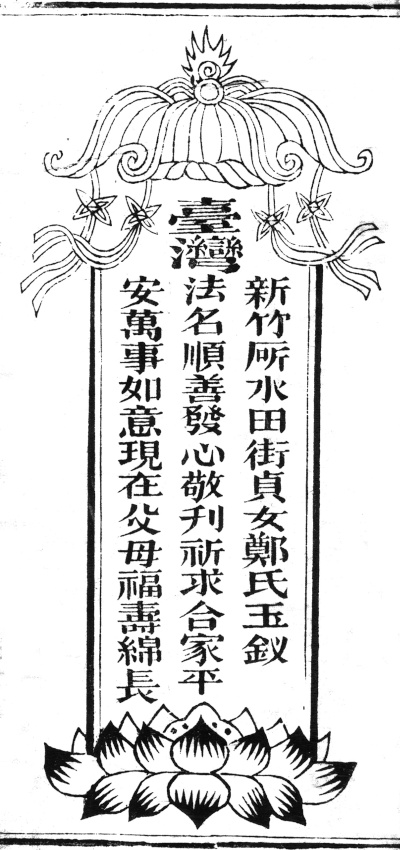 臺灣
新竹所水田街貞女鄭氏玉釵
法名順善發心敬刋祈求合家平
安萬事如意現在父母福壽綿長